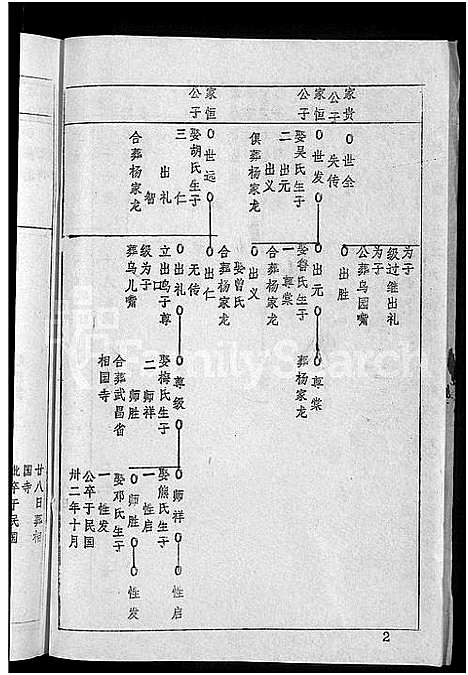 家贵
公子
家恒
公子
家恒
公子
世全
失传
世发
娶吴氏生子
二 出元
出义
俱葬杨家龙
世远
娶胡氏生子
三 仁
出礼
智
合葬杨家龙
为子
级过继出礼
为子
公葬乌园嘴
出胜
出元
娶詹氏生子
一 尊棠
合葬杨家龙
出义
娶曾氏
合葬杨家龙
出仁
无传
出礼
立出鸣子尊
级为子
葬乌儿嘴
尊棠
葬杨家龙
尊级
娶梅氏生子
二 师祥
师胜
合葬武昌省
相国寺
师祥
娶熊氏生子
一 性启
师胜
娶邓氏生子
一 性发
公卒于民国
卅二年十月
性启
性发
廿八日葬相
国寺
妣卒于民国
FamilySearch
2